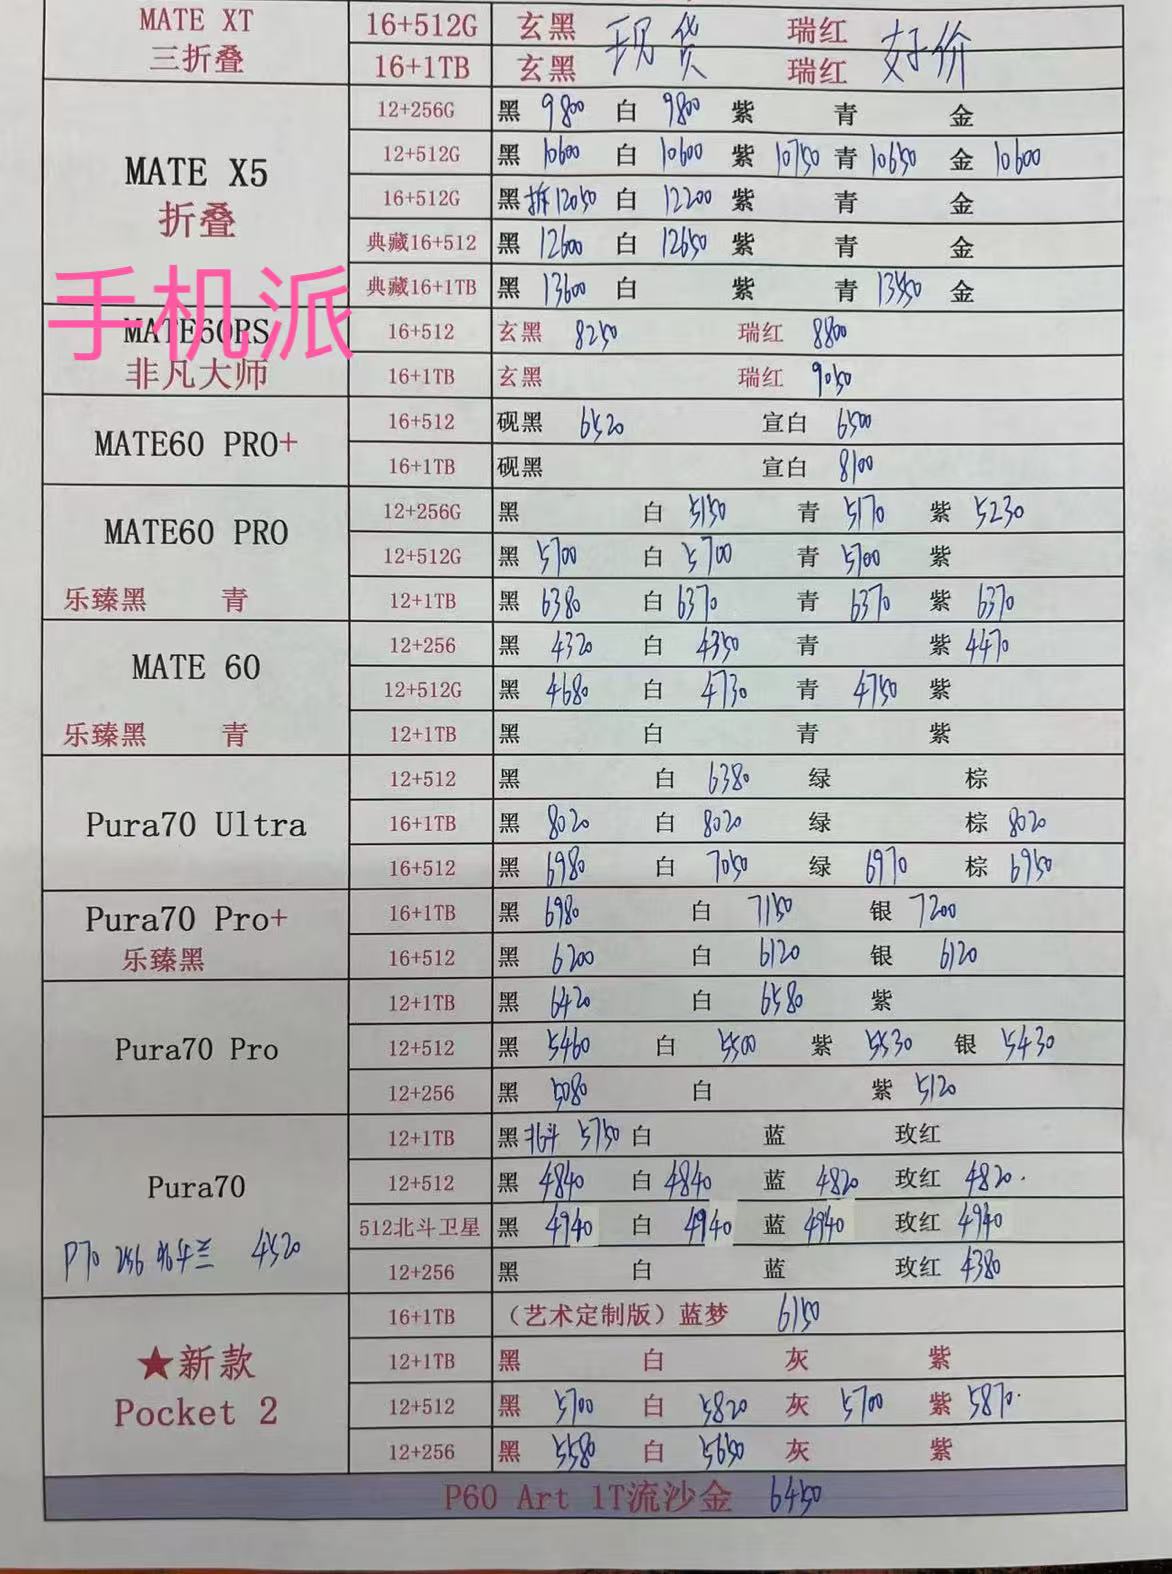 MATE XT 16+512G 玄黑 现货 瑞红 好价
三折叠 16+1TB 玄黑 瑞红
12+256G 黑 9800 白 9800 紫 青 金
MATE X5 12+512G 黑 10600 白 10600 紫 10750 青 10650 金 10600
折叠 16+512G 黑 拆 12050 白 12200 紫 青 金
典藏16+512 黑 12600 白 12650 紫 青 金
手机派 典藏16+1TB 黑 13600 白 紫 青 13450 金
MATE60RS 16+512 玄黑 8250 瑞红 8800
非凡大师 16+1TB 玄黑 瑞红 9050
MATE60 PRO+ 16+512 砚黑 6520 宣白 6500
16+1TB 砚黑 宣白 8100
MATE60 PRO 12+256G 黑 白 5150 青 5170 紫 5230
12+512G 黑 5700 白 5700 青 5700 紫
乐臻黑 青 12+1TB 黑 6380 白 6370 青 6370 紫 6370
MATE 60 12+256 黑 4320 白 4350 青 紫 4470
12+512G 黑 4680 白 4730 青 4750 紫
乐臻黑 青 12+1TB 黑 白 青 紫
12+512 黑 白 6380 绿 棕
Pura70 Ultra 16+1TB 黑 8020 白 8020 绿 棕 8020
16+512 黑 6980 白 7050 绿 6970 棕 6950
Pura70 Pro+ 16+1TB 黑 6980 白 7150 银 7200
乐臻黑 16+512 黑 6200 白 6120 银 6120
12+1TB 黑 6420 白 6580 紫
Pura70 Pro 12+512 黑 5460 白 5500 紫 5530 银 5430
12+256 黑 5080 白 紫 5120
12+1TB 黑 北斗 5750 白 蓝 玫红
Pura70 12+512 黑 4840 白 4840 蓝 4820 玫红 4820.
512北斗卫星 黑 4940 白 4940 蓝 4940 玫红 4940
P70 256 北斗兰 4520 12+256 黑 白 蓝 玫红 4380
16+1TB （艺术定制版）蓝梦 6150
★新款 12+1TB 黑 白 灰 紫
Pocket 2 12+512 黑 5700 白 5820 灰 5700 紫 5870.
12+256 黑 5580 白 5650 灰 紫
P60 Art 1T流沙金 6450